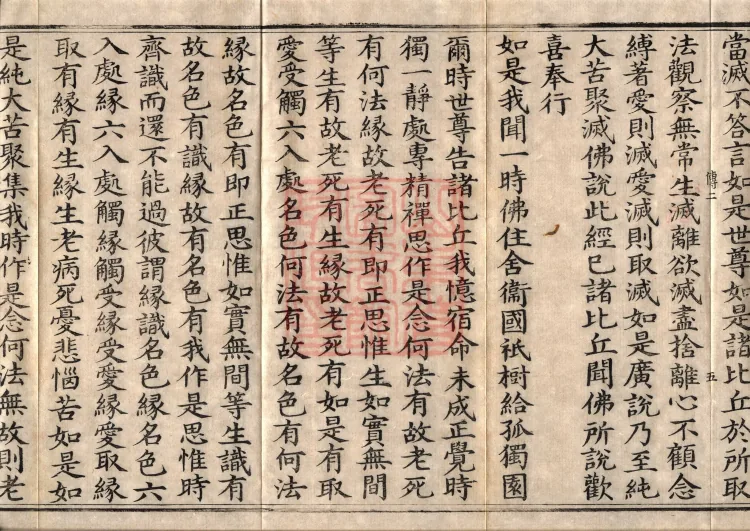 當滅不答言如是世尊如是諸比丘於所取
傳二 五
法觀察無常生滅離欲滅盡捨離心不顧念
縛著愛則滅愛滅則取滅如是廣說乃至純
大苦聚滅佛說此經已諸比丘聞佛所說歡
喜奉行
如是我聞一時佛住舍衞國祇樹給孤獨園
爾時世尊告諸比丘我憶宿命未成正覺時
獨一靜處專精禪思作是念何法有故老死
有何法緣故老死有即正思惟生如實無間
等生有故老死有生緣故老死有如是有取
愛受觸六入處名色何法有故名色有何法
緣故名色有即正思惟如實無間等生識有
故名色有識緣故有名色有我作是思惟時
齊識而還不能過彼謂緣識名色緣名色六
入處緣六入處觸緣觸受緣受愛緣愛取緣
取有緣有生緣生老病死憂悲惱苦如是如
是純大苦聚集我時作是念何法無故則老